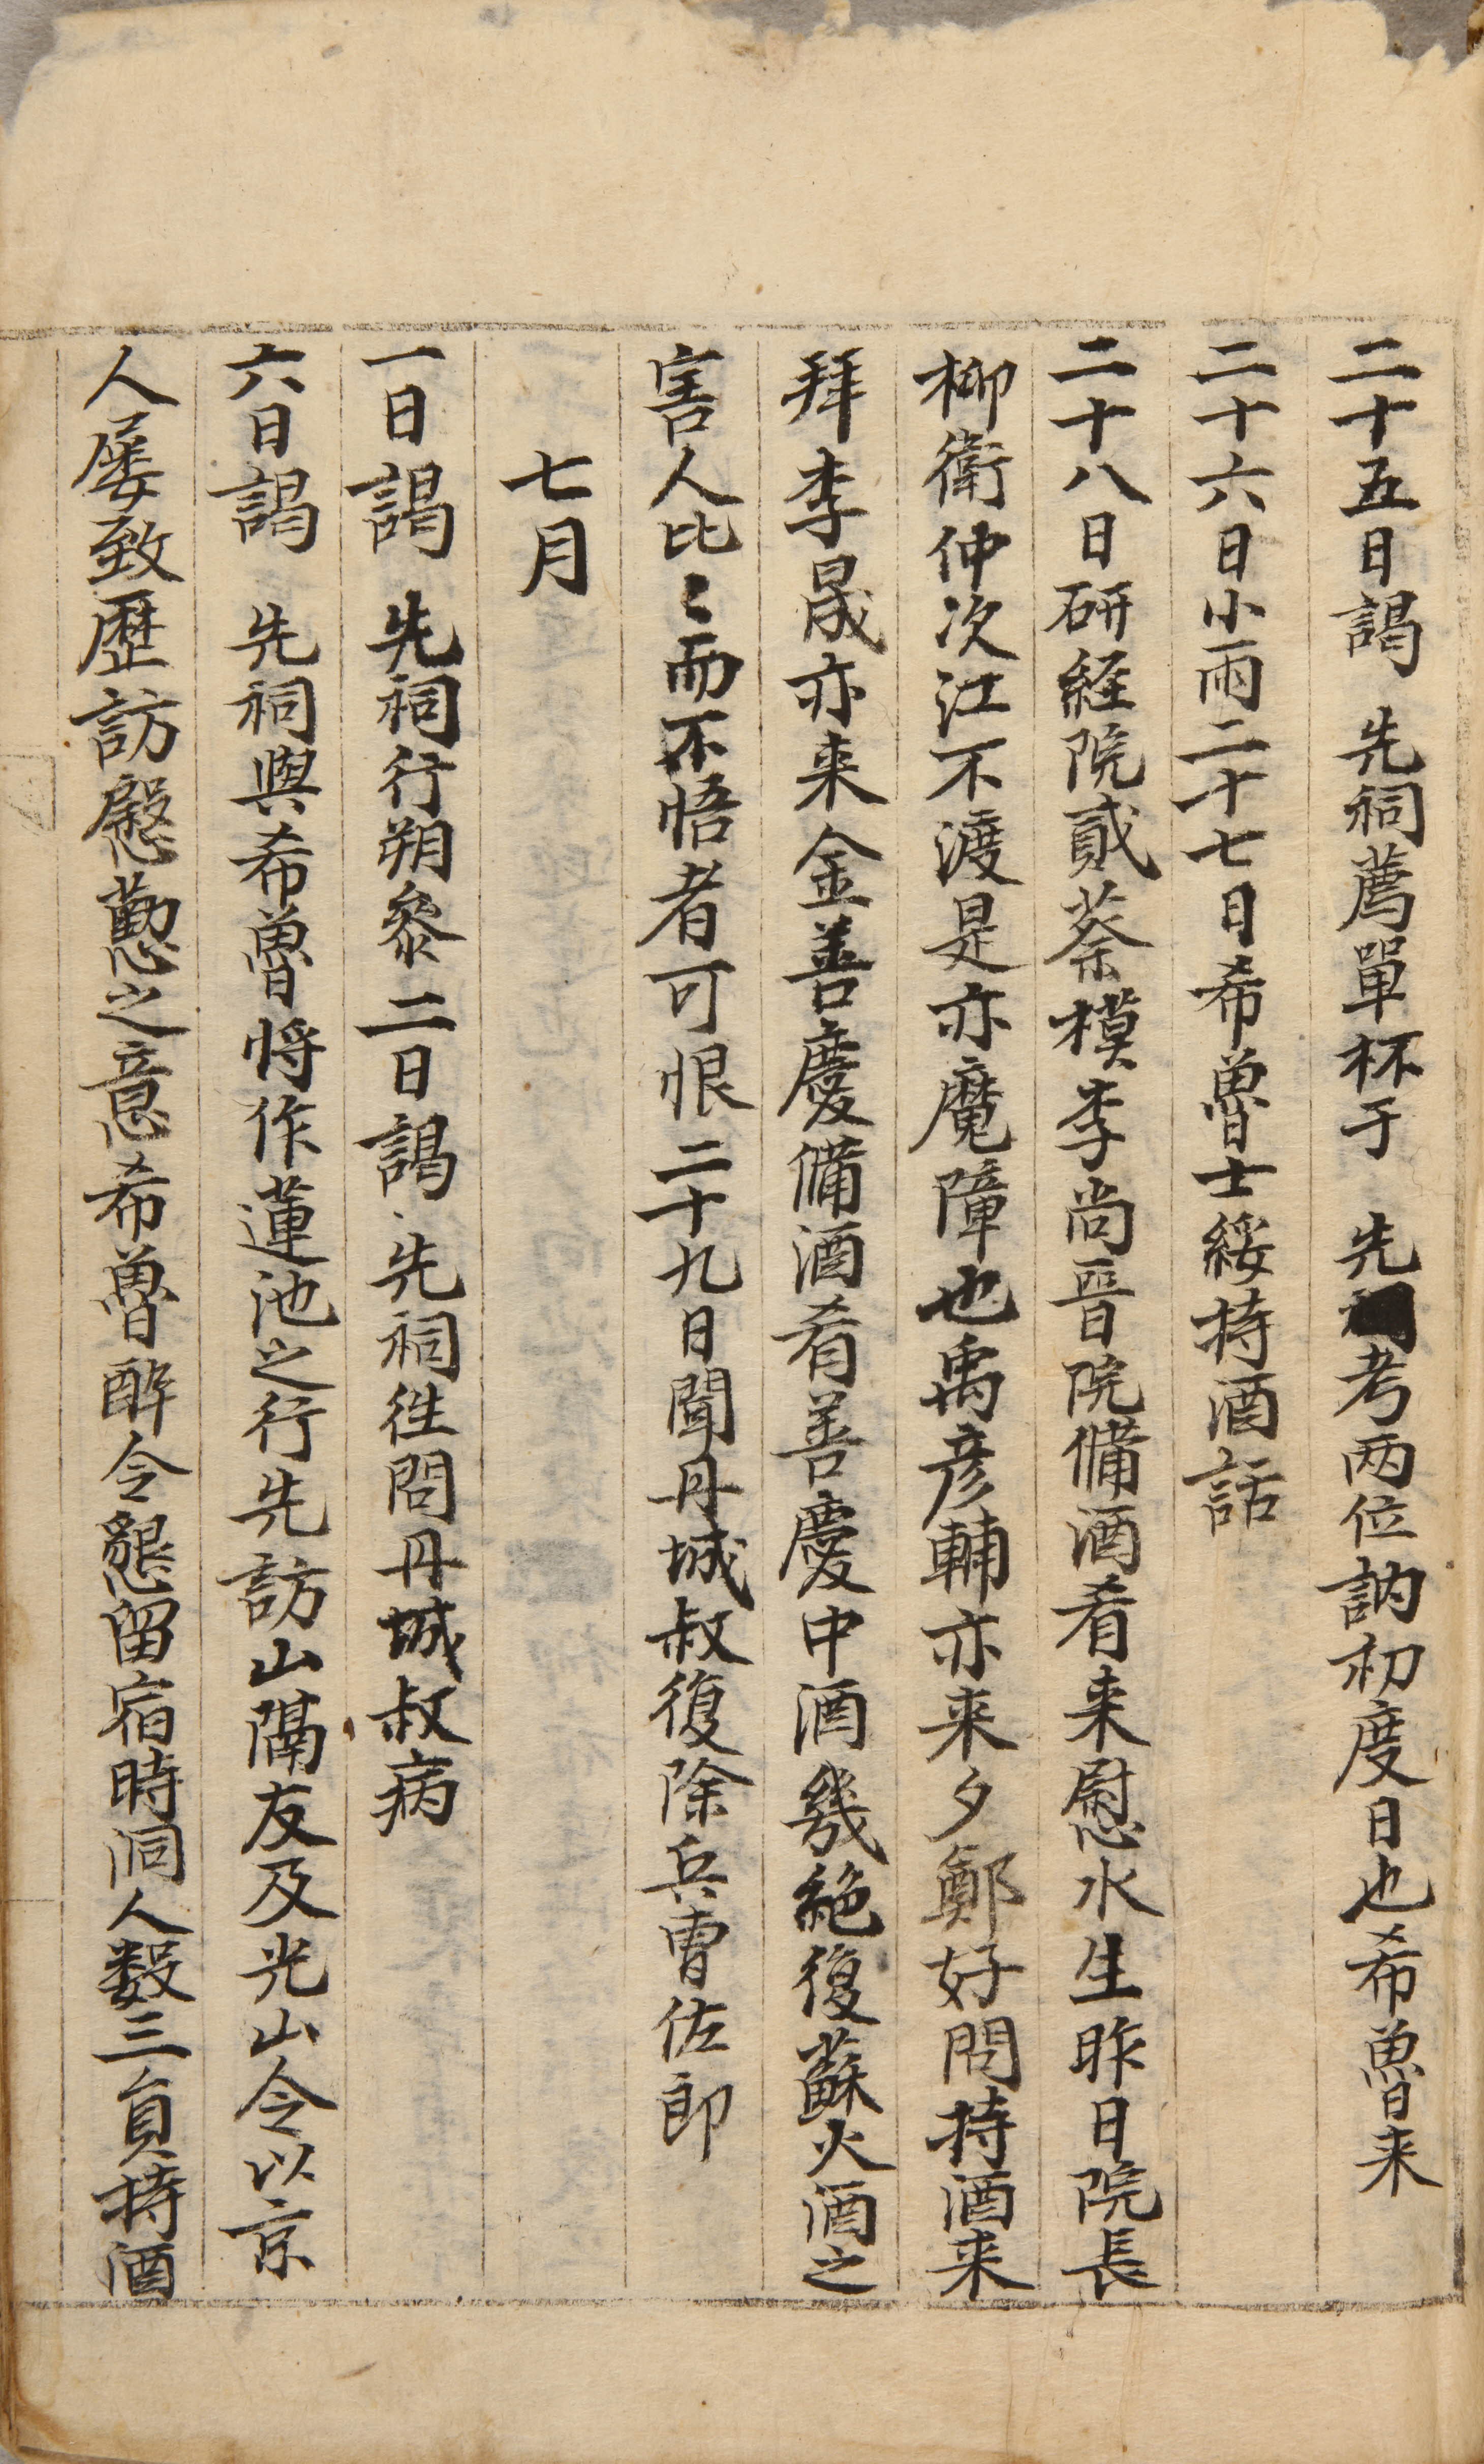 二十五日謁 先祠薦單杯于 先考两位訥初度日也希魯来
二十六日小雨二十七日希魯士綏持酒話
二十八日研経院貳蔡模李尚晋院備酒肴来慰水生昨日院長
柳衛仲次江不渡是亦魔障也禹彦輔亦来夕鄭好問持酒来
拜李晟亦来金善慶備酒肴善慶中酒幾絶復蘇火酒之
害人比〻而不悟者可恨二十九日聞丹城叔復除兵曺佐郎
七月
一日謁 先祠行朔叅二日謁 先祠徃問丹城叔病
六日謁 先祠與希魯将作蓮池之行先訪山隔友及光山令以京
人屡致歷訪慇懃之意希魯醉令懇留宿時洞人数三負持酒